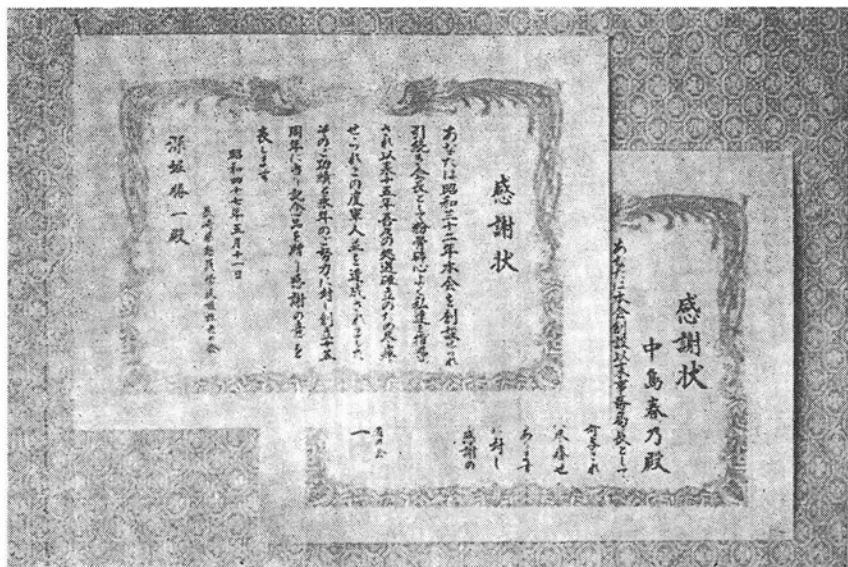 感謝状
あなたは昭和三十二年本会を創設せられ
引続き会長として粉骨砕心よく私達を指導
され以来十五年各度の処遇確立のため尽瘁
せられこの度軍人並を達成されました
そのご功績と永年のご努力に対し創立十五
周年に当り記念品を贈り感謝の意を
表します
昭和四十七年五月十一日
深堀勝一殿
感謝状
中島春乃殿
あなたは本会創設以来事務局長として
命を
尽瘁せ
あります
に対し
感謝の
一